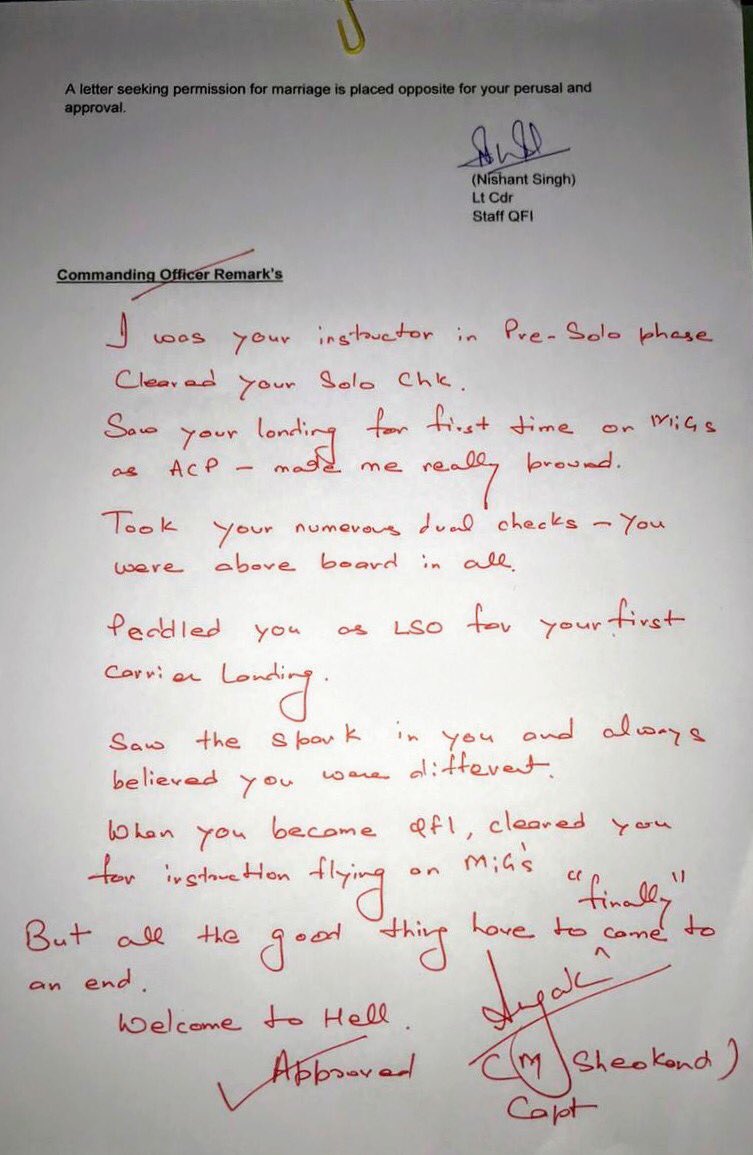 A letter seeking permission for marriage is placed opposite for your perusal and
approval.
(Nishant Singh)
Lt Cdr
Staff QFI
Commanding Officer Remark's
I was your instructor in Pre-Solo phase
Cleared your Solo Chk.
Saw your landing for first time on MiGs
as ACP - made me really pround.
Took your numerous dual checks - You
were above board in all.
Peddled you as LSO for your first
Carrier Landing.
Saw the spark in you and always
believed you were different.
When you became QFI, cleared you
for instruction flying on MiG's
"finally"
But all the good thing have to come to
an end.
Welcome to Hell.
Approved
(M Sheokand)
Capt